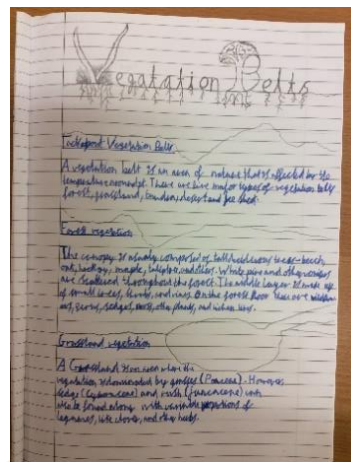 Vegatation Belts
Vegetation Belts
A vegetation belt is an area of nature that is affected by the
temperature around it. There are five major types of vegetation belts
forest, grassland, tundra, desert and ice sheet.
Forest vegetation
The canopy is usually comprised of tall hardwood trees - beech
oak, hickory, maple, tulip tree, and others. White pine and other
are scattered throughout the forest. The middle layer is made up
of small trees, shrubs, and vines. On the forest floor there are
ferns, sedges, moss, other plants, and
Grassland vegetation
A Grassland is an area where the
vegetation is dominated by grasses (Poaceae). However,
sedge (Cyperaceae) and rush (Juncaceae) can
also be found along with variable proportions of
legumes, like clover, and other herbs.